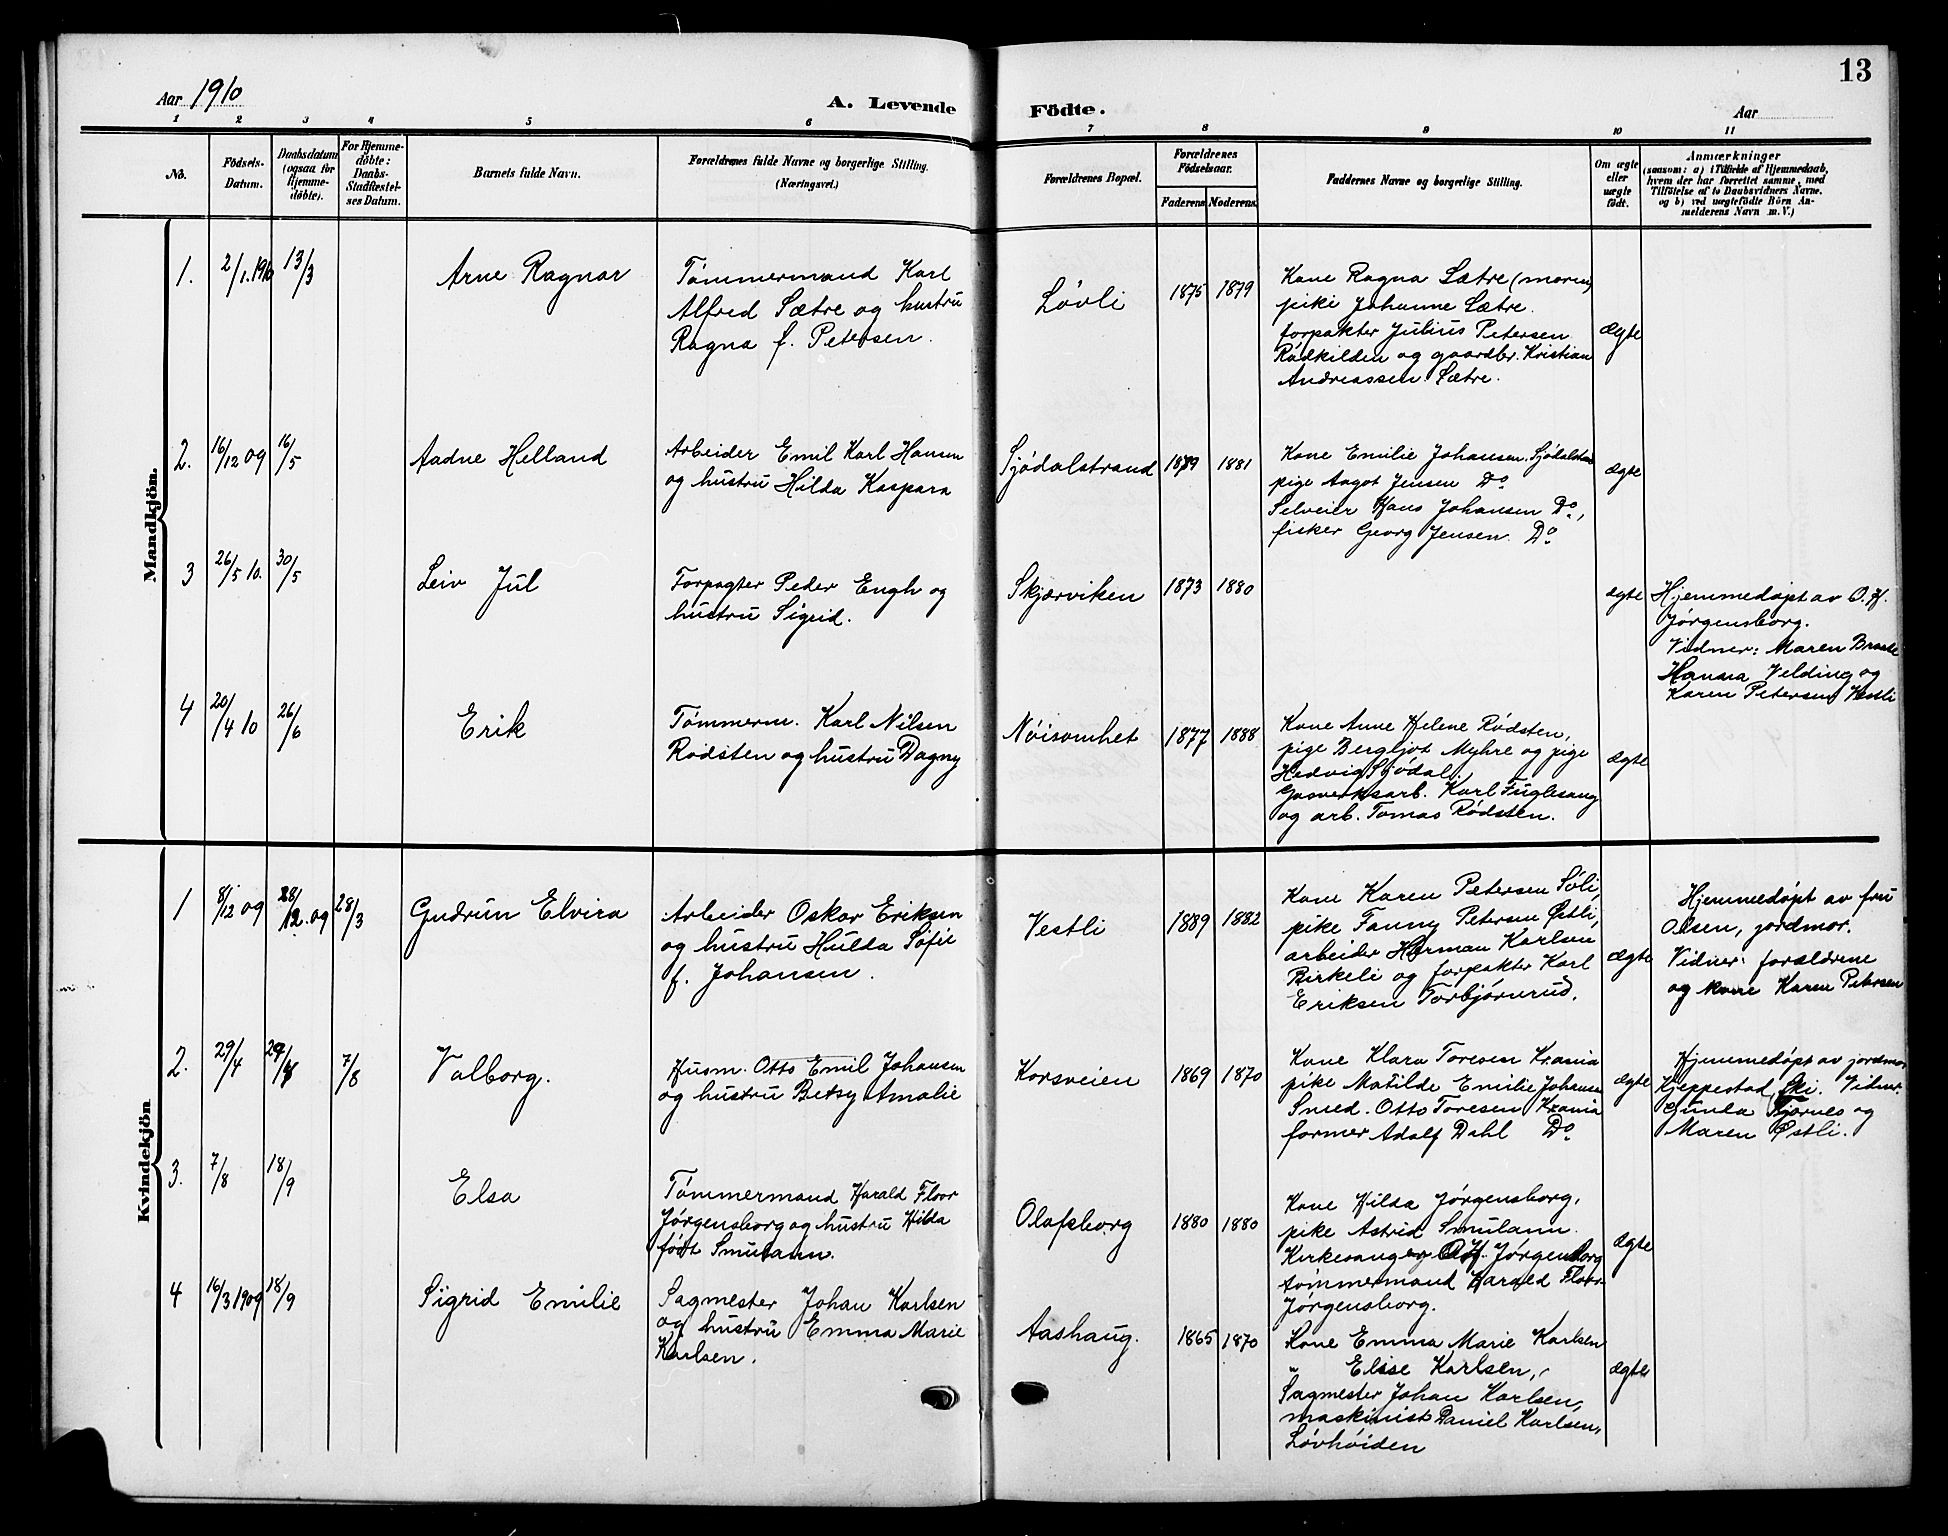 Aar 1910
A. Levende
Födte.
Aar
13
1 2 3 4 5 6 7 8 9 10 11
No.
Födsels-
Datum.
Daabsdatum
(ogsaa for
Hjemme-
döbte).
For Hjemme-
döbte:
Daabs-
Stadfæstel-
ses Datum.
Barnets fulde Navn.
Forældrenes fulde Navne og borgerlige Stilling.
(Næringsvei.)
Forældrenes Bopæl.
Forældrenes
Födselsaar.
Faderens Moderens
Faddernes Navne og borgerlige Stilling.
Om ægte
eller
uægte
födt.
Anmærkninger
(saasom: a) i Tilfælde af Hjemmedaab,
hvem der har forrettet samme, med
Tilföielse af to Daabsvidners Navne,
og b) ved uægtefödte Börn An-
melderens Navn m. V.)
Mandkjön.
1. 2/1.1910 13/3
Arne Ragnar
Tømmermand Karl
Alfred Sætre og hustru
Ragna f. Petersen.
Løvli
1875 1879
Kone Ragna Sætre (moren)
pike Johanne Sætre.
forpakter Julius Petersen
Rødkilden og gaardbr. Kristian
Andreassen Sætre.
ægte
2. 16/12 09 16/5
Aadne Helland
Arbeider Emil Karl Hansen
og hustru Hilda Kaspara
Sjødalstrand
1879 1881
Kone Emilie Johansen. Sjødalstran
pige Aagot Jensen Do
Selveier Hans Johansen Do,
fisker Georg Jensen. Do
ægte
3 26/5 10. 30/5
Leiv Jul
Forpagter Peder Engh og
hustru Sigrid.
Skjærviken
1873 1880
ægte
Hjemmedøpt av O. H.
Jørgensborg.
Vidner: Maren Braate
Hanna Velding og
Karen Petersen Vestli
4 20/4 10 26/6
Erik
Tømmerm. Karl Nilsen
Rødsten og hustru Dagny
Nøisomhet
1877 1888
Kone Anne Helene Rødsten,
pige Bergljot Myhre og pige
Hedvig Sjødal.
Gasverksarb. Karl Fuglesang
og arb. Tomas Rødsten.
ægte
Kvindekjön
1 8/12 09 28/12.09 28/3
Gudrun Elvira
Arbeider Oskar Eriksen
og hustru Hulda Sofie
f. Johansen.
Vestli
1889 1882
Kone Karen Petersen Søli,
pike Fanny Petersen Østli,
arbeider Herman Karlsen
Birkeli og forpakter Karl
Eriksen Torbjørnrud.
ægte
Hjemmedøpt av fru
Olsen, jordmor.
Vidner: forældrene
og kone Karen Petersen
2. 29/4 29/4 7/8
Valborg.
Husm. Otto Emil Johansen
og hustru Betsy Amalie
Korsveien
1869 1870
Kone Klara Toresen Krania
pike Matilde Emilie Johansen
Smed. Otto Toresen Krania
former Adolf Dahl Do
ægte
Hjemmedøpt av jordmor
Kjeppestad, Ski. Vidner.
Gunla Bjørnes og
Maren Østli.
3. 7/8 18/9
Elsa
Tømmermand Harald Floor
Jørgensborg og hustru Hilda
født Smulann.
Olafsborg
1880 1880
Kone Hilda Jørgensborg,
pike Astrid Smulann.
Kirkesanger O.H. Jørgensborg
tømmermand Harald Floor
Jørgensborg.
ægte
4 16/3 1909 18/9
Sigrid Emilie
Sagmester Johan Karlsen
og hustru Emma Marie
Karlsen.
Aashaug.
1865 1870
Kone Emma Marie Karlsen
" Elise Karlsen,
Sagmester Johan Karlsen,
maskinist Daniel Karlsen,
Løvhøiden
ægte